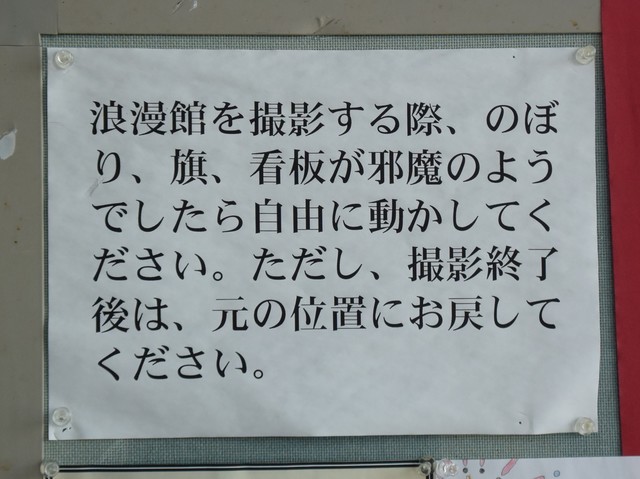 浪漫館を撮影する際、のぼ
り、旗、看板が邪魔のよう
でしたら自由に動かしてく
ださい。ただし、撮影終了
後は、元の位置にお戻して
ください。